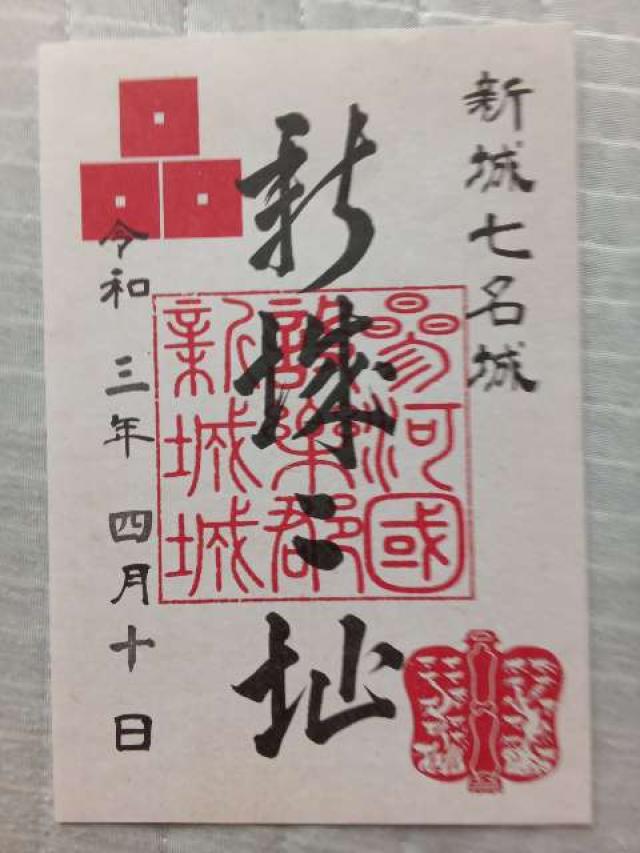 新城七名城
新城〻址
參河國
設樂郡
新城城
令和 三年 四月 十日